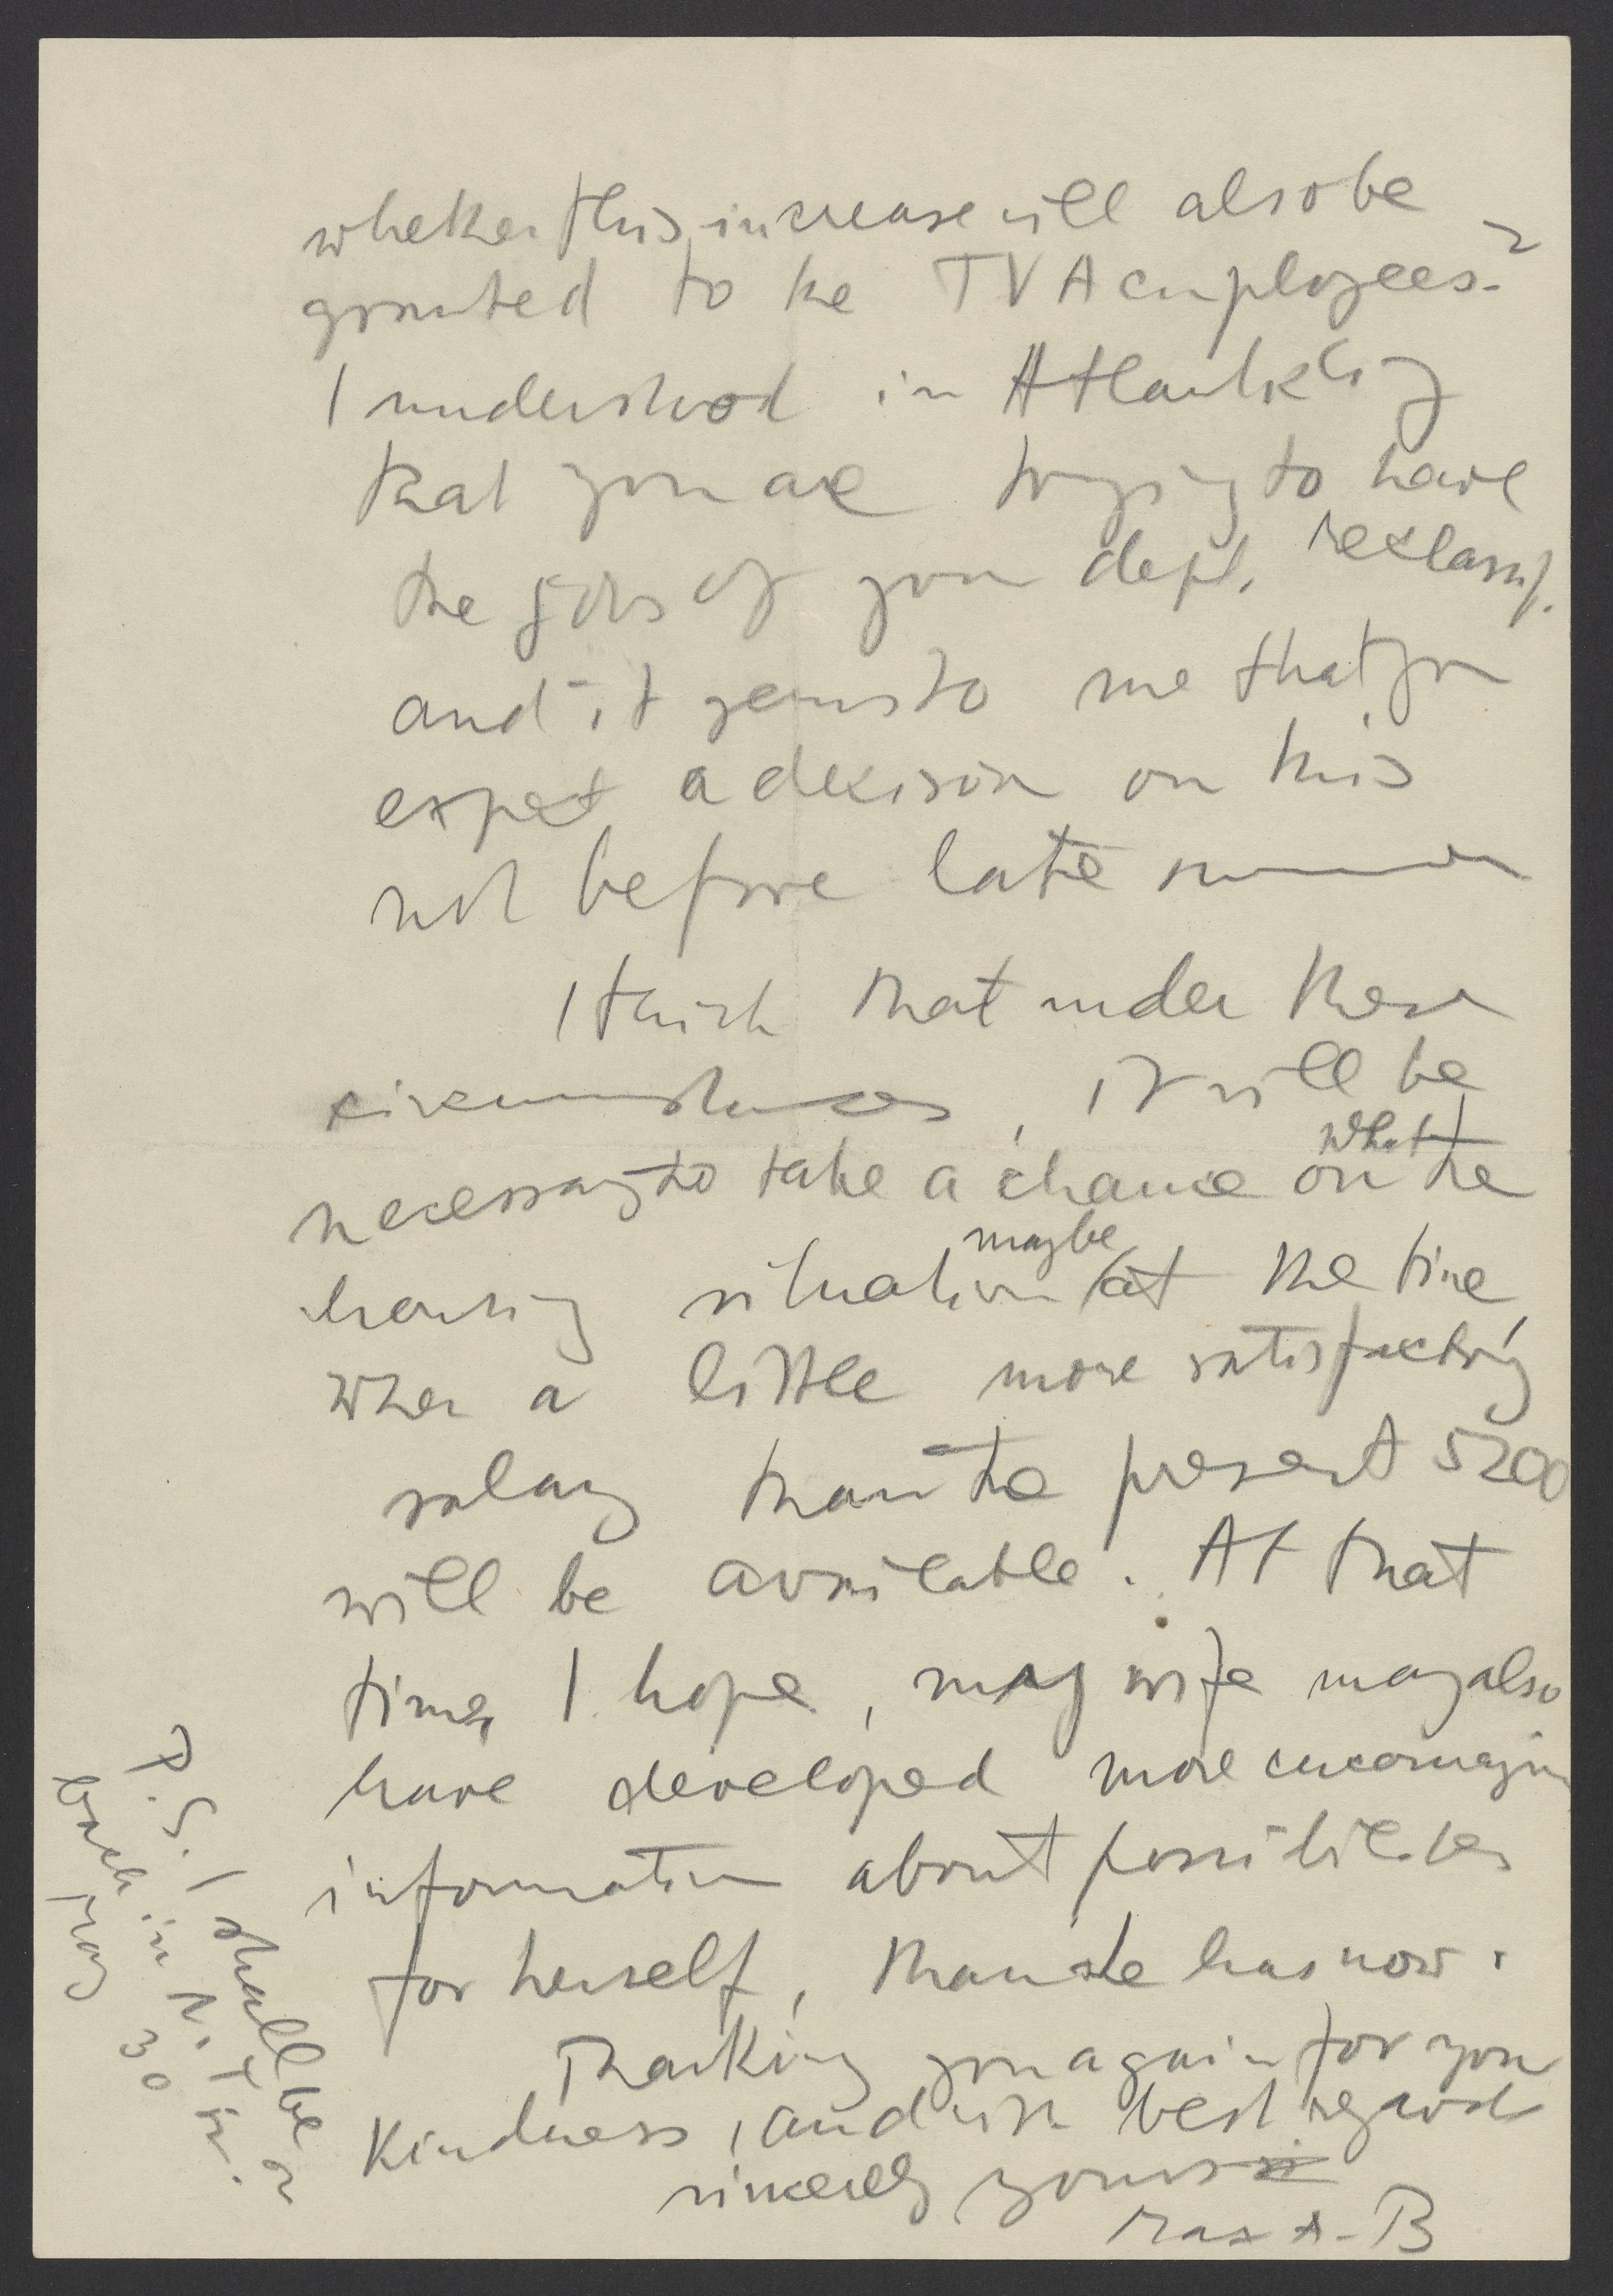 whether this increase will also be
granted to the TVA employees?
I understood in Atlantic City
that you are trying to have
the jobs of your dept. reclassif.
and it seems to me that you
expect a decision on this
not before late summer
I think that under these
circumstances, it will be
necessary to take a chance on what the
housing situation maybe at the time,
when a little more satisfactory
salary than the present 5200
will be available. At that
time, I hope, my wife may also
have developed more encouraging
information about possibilities
for herself, than she has now.
Thanking you again for your
kindness, and with best regards
sincerely yours
P.S. I shall be
back in N.Y.
May 30